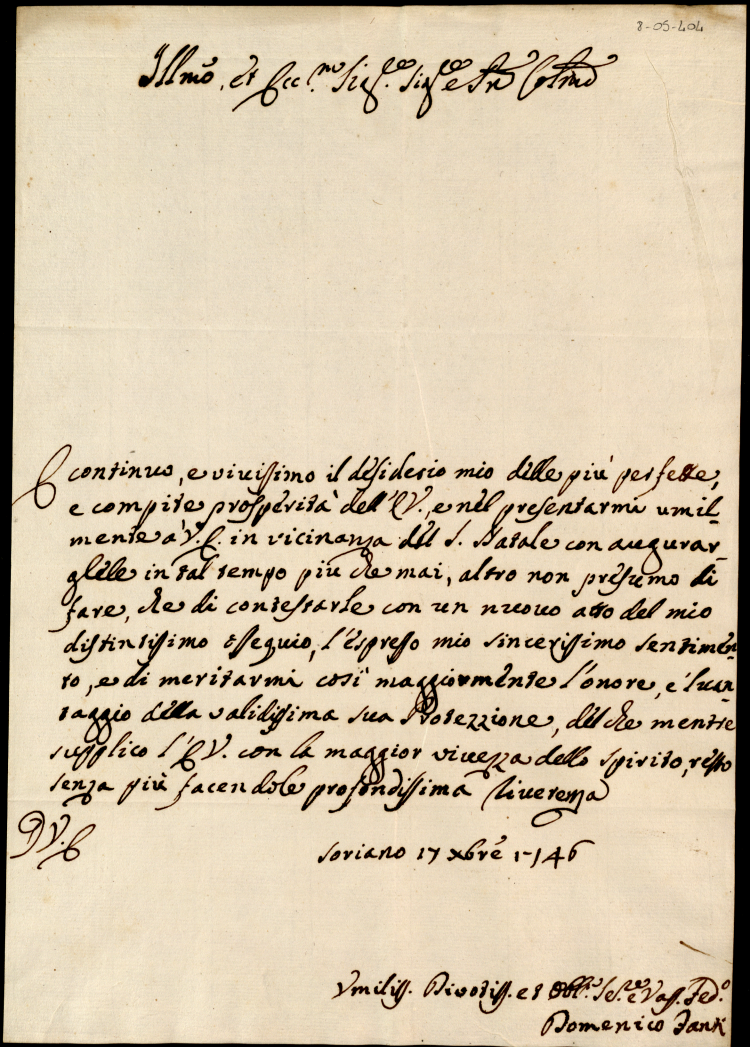 8-05-404
Illmo, et Ecc.mo Sig.re Sig.re e Pne Colmo
E continuo, e vivissimo il desiderio mio delle più perfette,
e compite prosperità dell'E.V., e nel presentarmi umil-
mente a V.E. in vicinanza del S. Natale con augurar-
glele in tal tempo più che mai, altro non presumo di
fare, che di contestarle con un nuovo atto del mio
distintissimo osseguio, l'espresso mio sincerissimo sentimen-
to, e di meritarmi così maggiormente l'onore, e l'van-
taggio della validissima sua Protezzione, del che mentre
supplico l'E.V. con la maggior vivezza dello spirito, resto
senza più facendole profondissima riverenza
D V.E.
Soriano 17 xbre 1746
Vmiliss. Divotiss. et Obblmo Se.re e Vass. Fed.o
Domenico Fanti